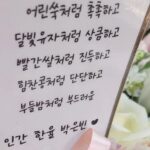 어린쑥처럼 촉촉하고
달빛유자처럼 상큼하고
빨간쌀처럼 진득하고
힘찬콩처럼 단단하고
부들밤처럼 부드러운
인간 한율 박은빈♥